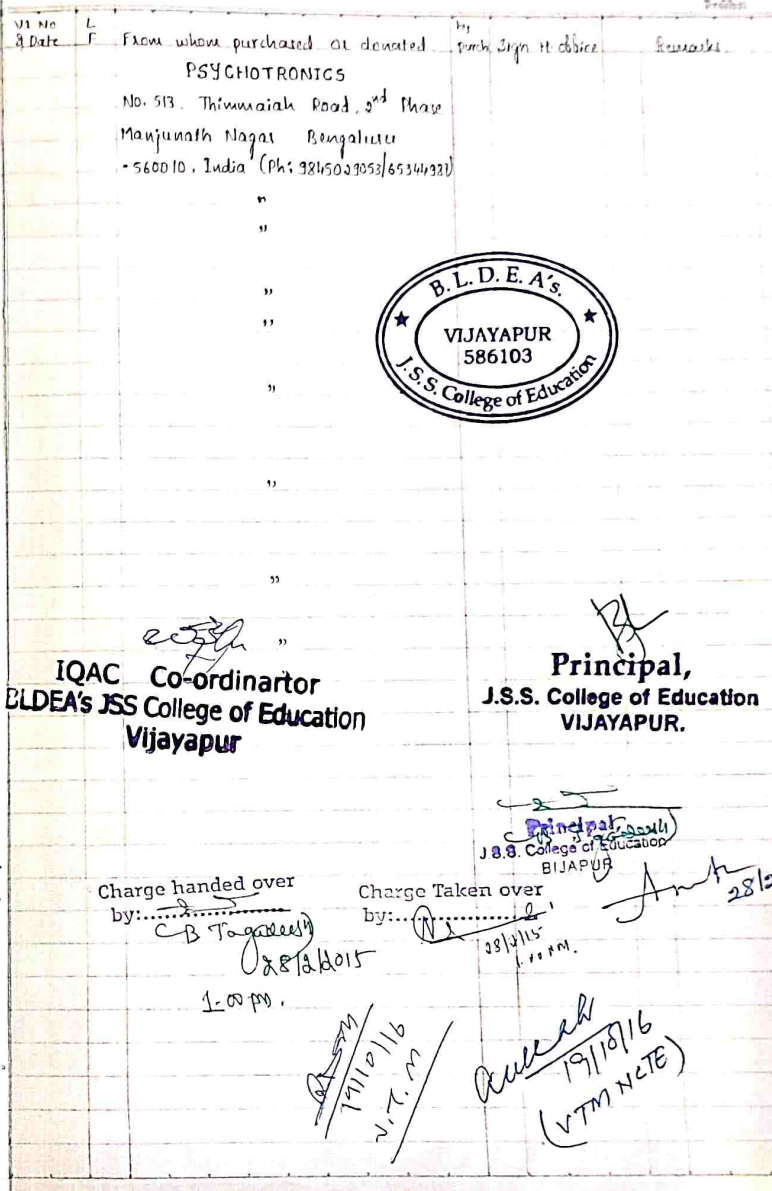 V1 No L by
& Date F From whom purchased or donated purch Sign H. obbice Remarks.
PSYCHOTRONICS
No. 513. Thimmaiah Road, 2nd Phase
Manjunath Nagar Bengaluru
- 560010. India (Ph: 9845029053/
"
"
"
"
"
"
"
"
B. L. D. E. A's.
VIJAYAPUR
586103
J. S. S. College of Education
IQAC Co-ordinartor
BLDEA's JSS College of Education
Vijayapur
Principal,
J.S.S. College of Education
VIJAYAPUR.
Principal,
J.S.S. College of Education
BIJAPUR
Charge handed over
by:................
28/2/2015
1-00 pm.
Charge Taken over
by:................
28/2/15
28/2
19/10/16
V.T.M
19/10/16
(VTM NCTE)